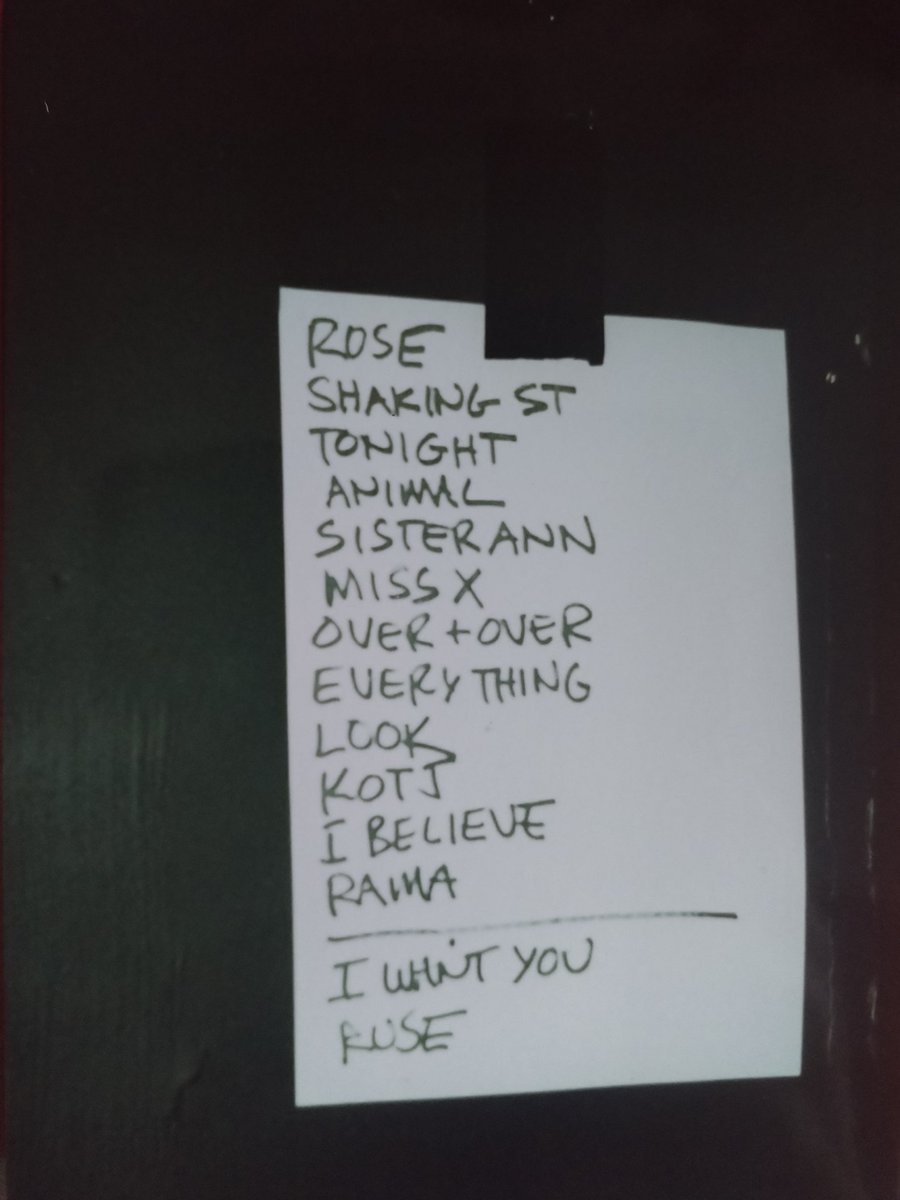 ROSE
SHAKING ST
TONIGHT
ANIMAL
SISTER ANN
MISS X
OVER + OVER
EVERYTHING
LOOK
KOTJ
I BELIEVE
RAMA
I WANT YOU
ROSE